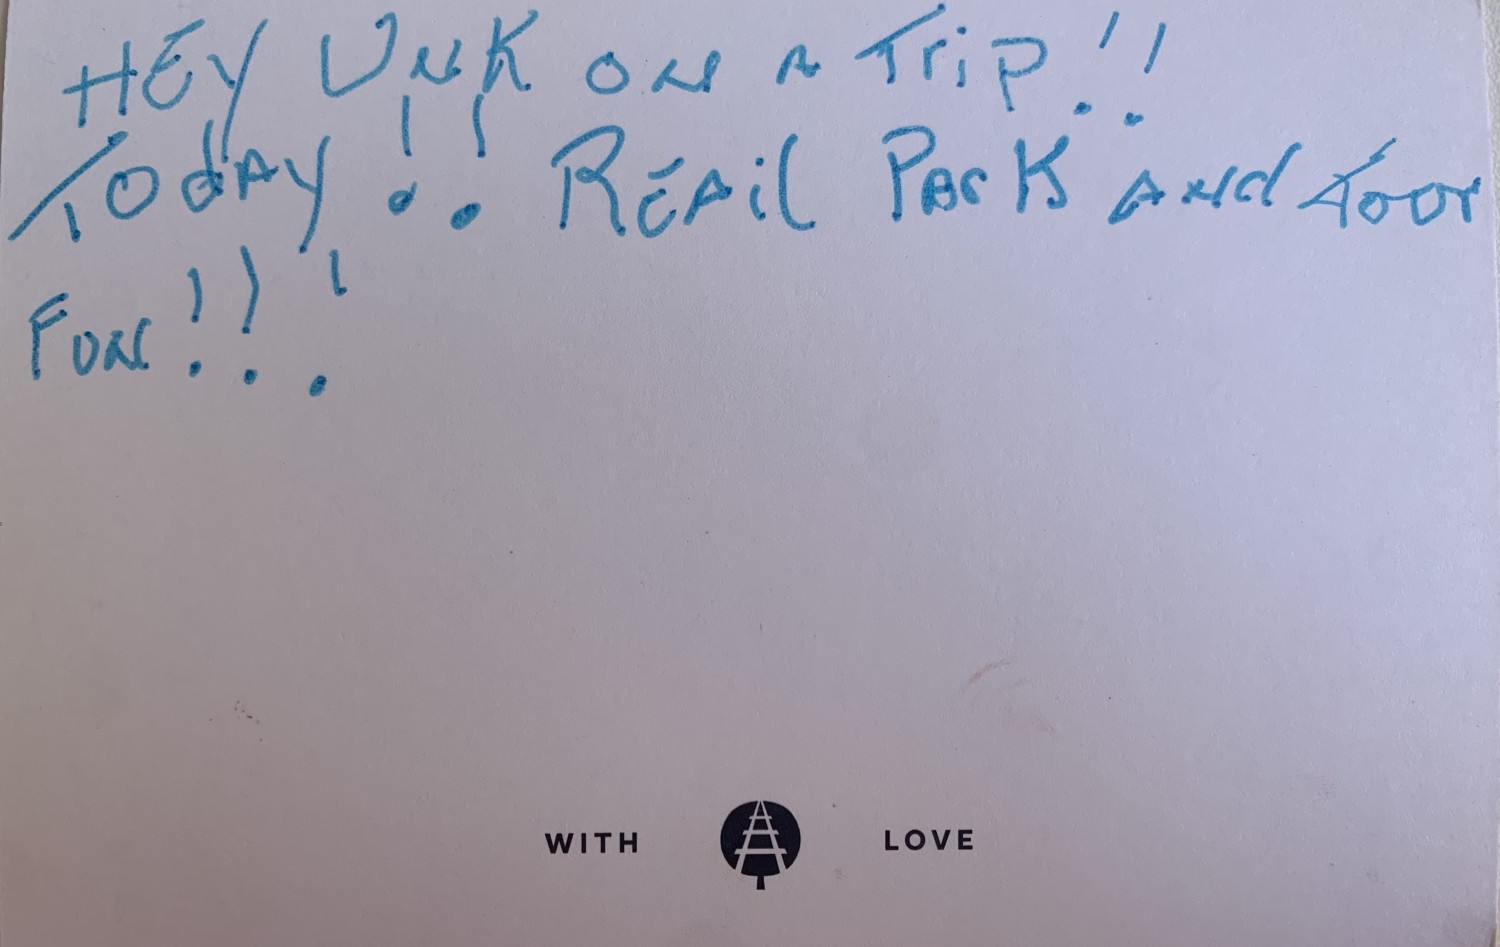 HEY UNK ON A Trip!!
Today!! REAiL PArK ANd Toor
FUN!!!
WITH LOVE